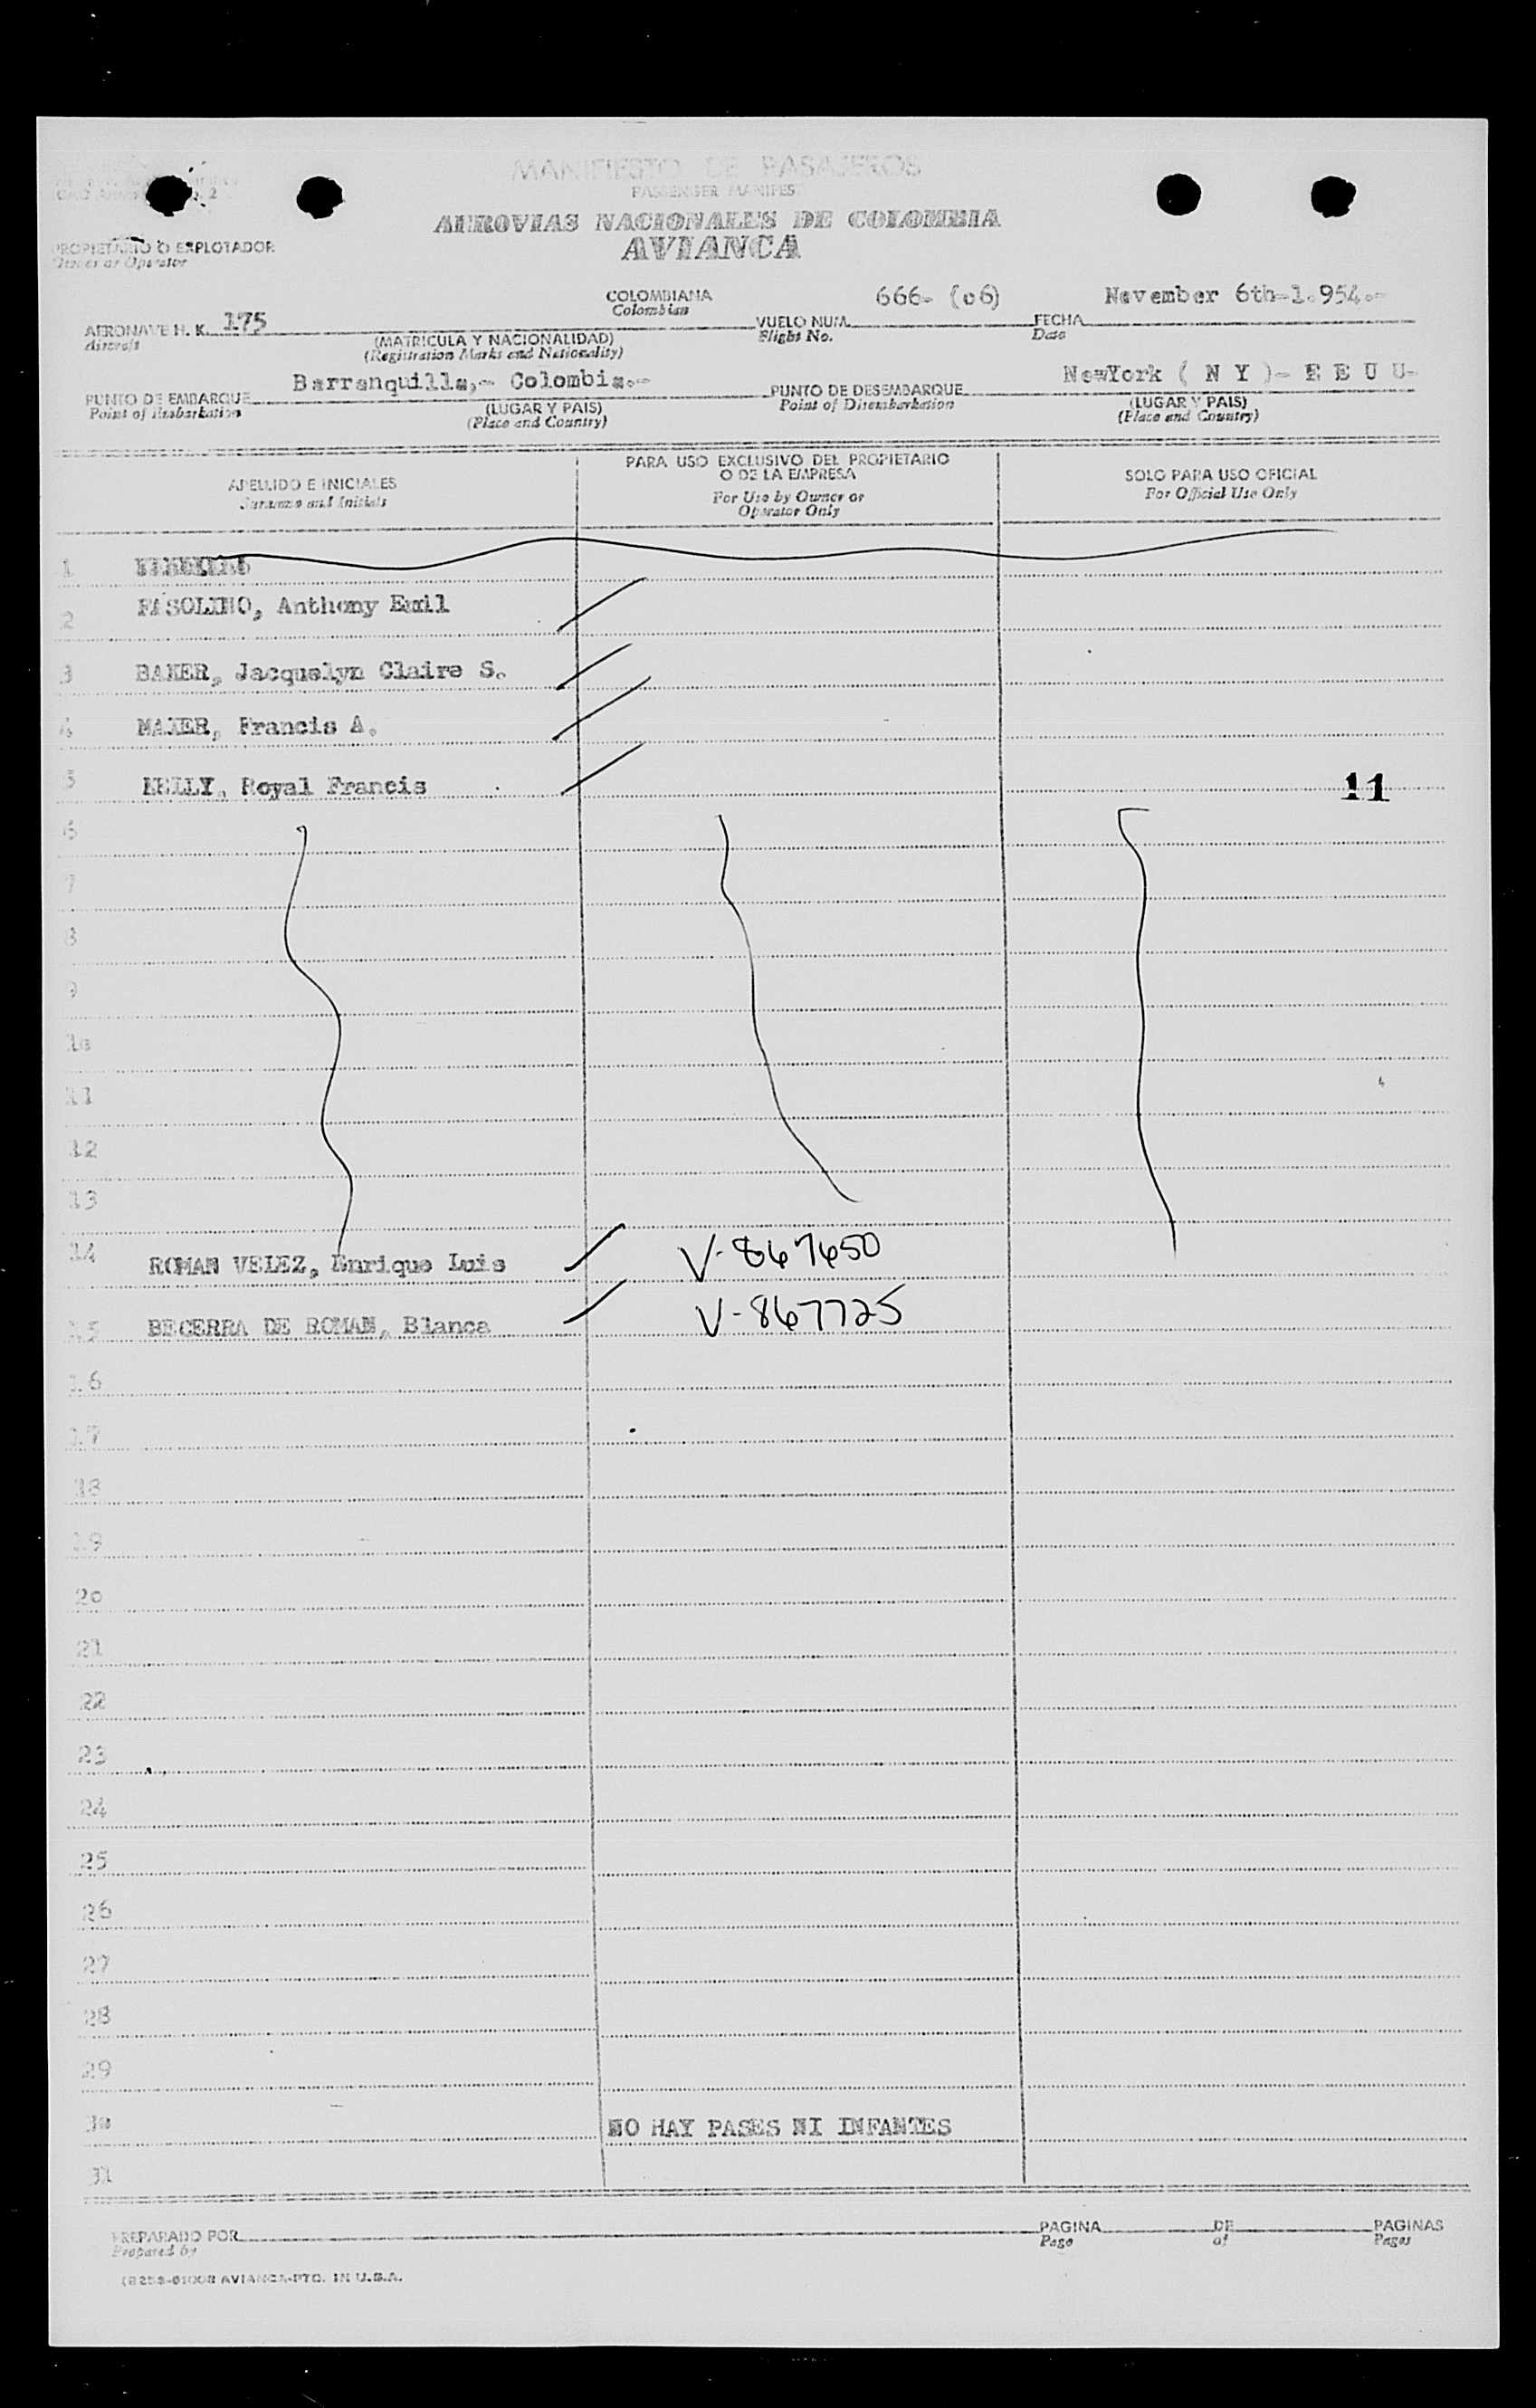 MANIFIESTO DE PASAJEROS
PASSENGER MANIFEST
AEROVIAS NACIONALES DE COLOMBIA
AVIANCA
PROPIETARIO O EXPLOTADOR
Owner or Operator
COLOMBIANA
Colombian
AERONAVE H. K. 175
Aircraft
(MATRICULA Y NACIONALIDAD)
(Registration Marks and Nationality)
VUELO NUM. 666- (o6)
Flight No.
FECHA November 6th-1.954.-
Date
PUNTO DE EMBARQUE Barranquilla,- Colombia.-
Point of Embarkation
(LUGAR Y PAIS)
(Place and Country)
PUNTO DE DESEMBARQUE NewYork ( N Y )- E E U U-
Point of Disembarkation
(LUGAR Y PAIS)
(Place and Country)
APELLIDO E INICIALES
Surname and Initials
PARA USO EXCLUSIVO DEL PROPIETARIO
O DE LA EMPRESA
For Use by Owner or
Operator Only
SOLO PARA USO OFICIAL
For Official Use Only
1
2 FASOLINO, Anthony Emil
3 BAKER, Jacquelyn Claire S.
4 Francis A.
5 KELLY, Royal Francis 11
6
7
8
9
1o
11
12
13
14 ROMAN VELEZ, Enrique Luis V-867650
15 BECERRA DE ROMAN, Blanca V-867725
16
17
18
19
2o
21
22
23
24
25
26
27
28
29
3o NO HAY PASES NI INFANTES
31
PREPARADO POR
Prepared by
PAGINA DE PAGINAS
Page of Pages
AVIANCA-PTD. IN U.S.A.